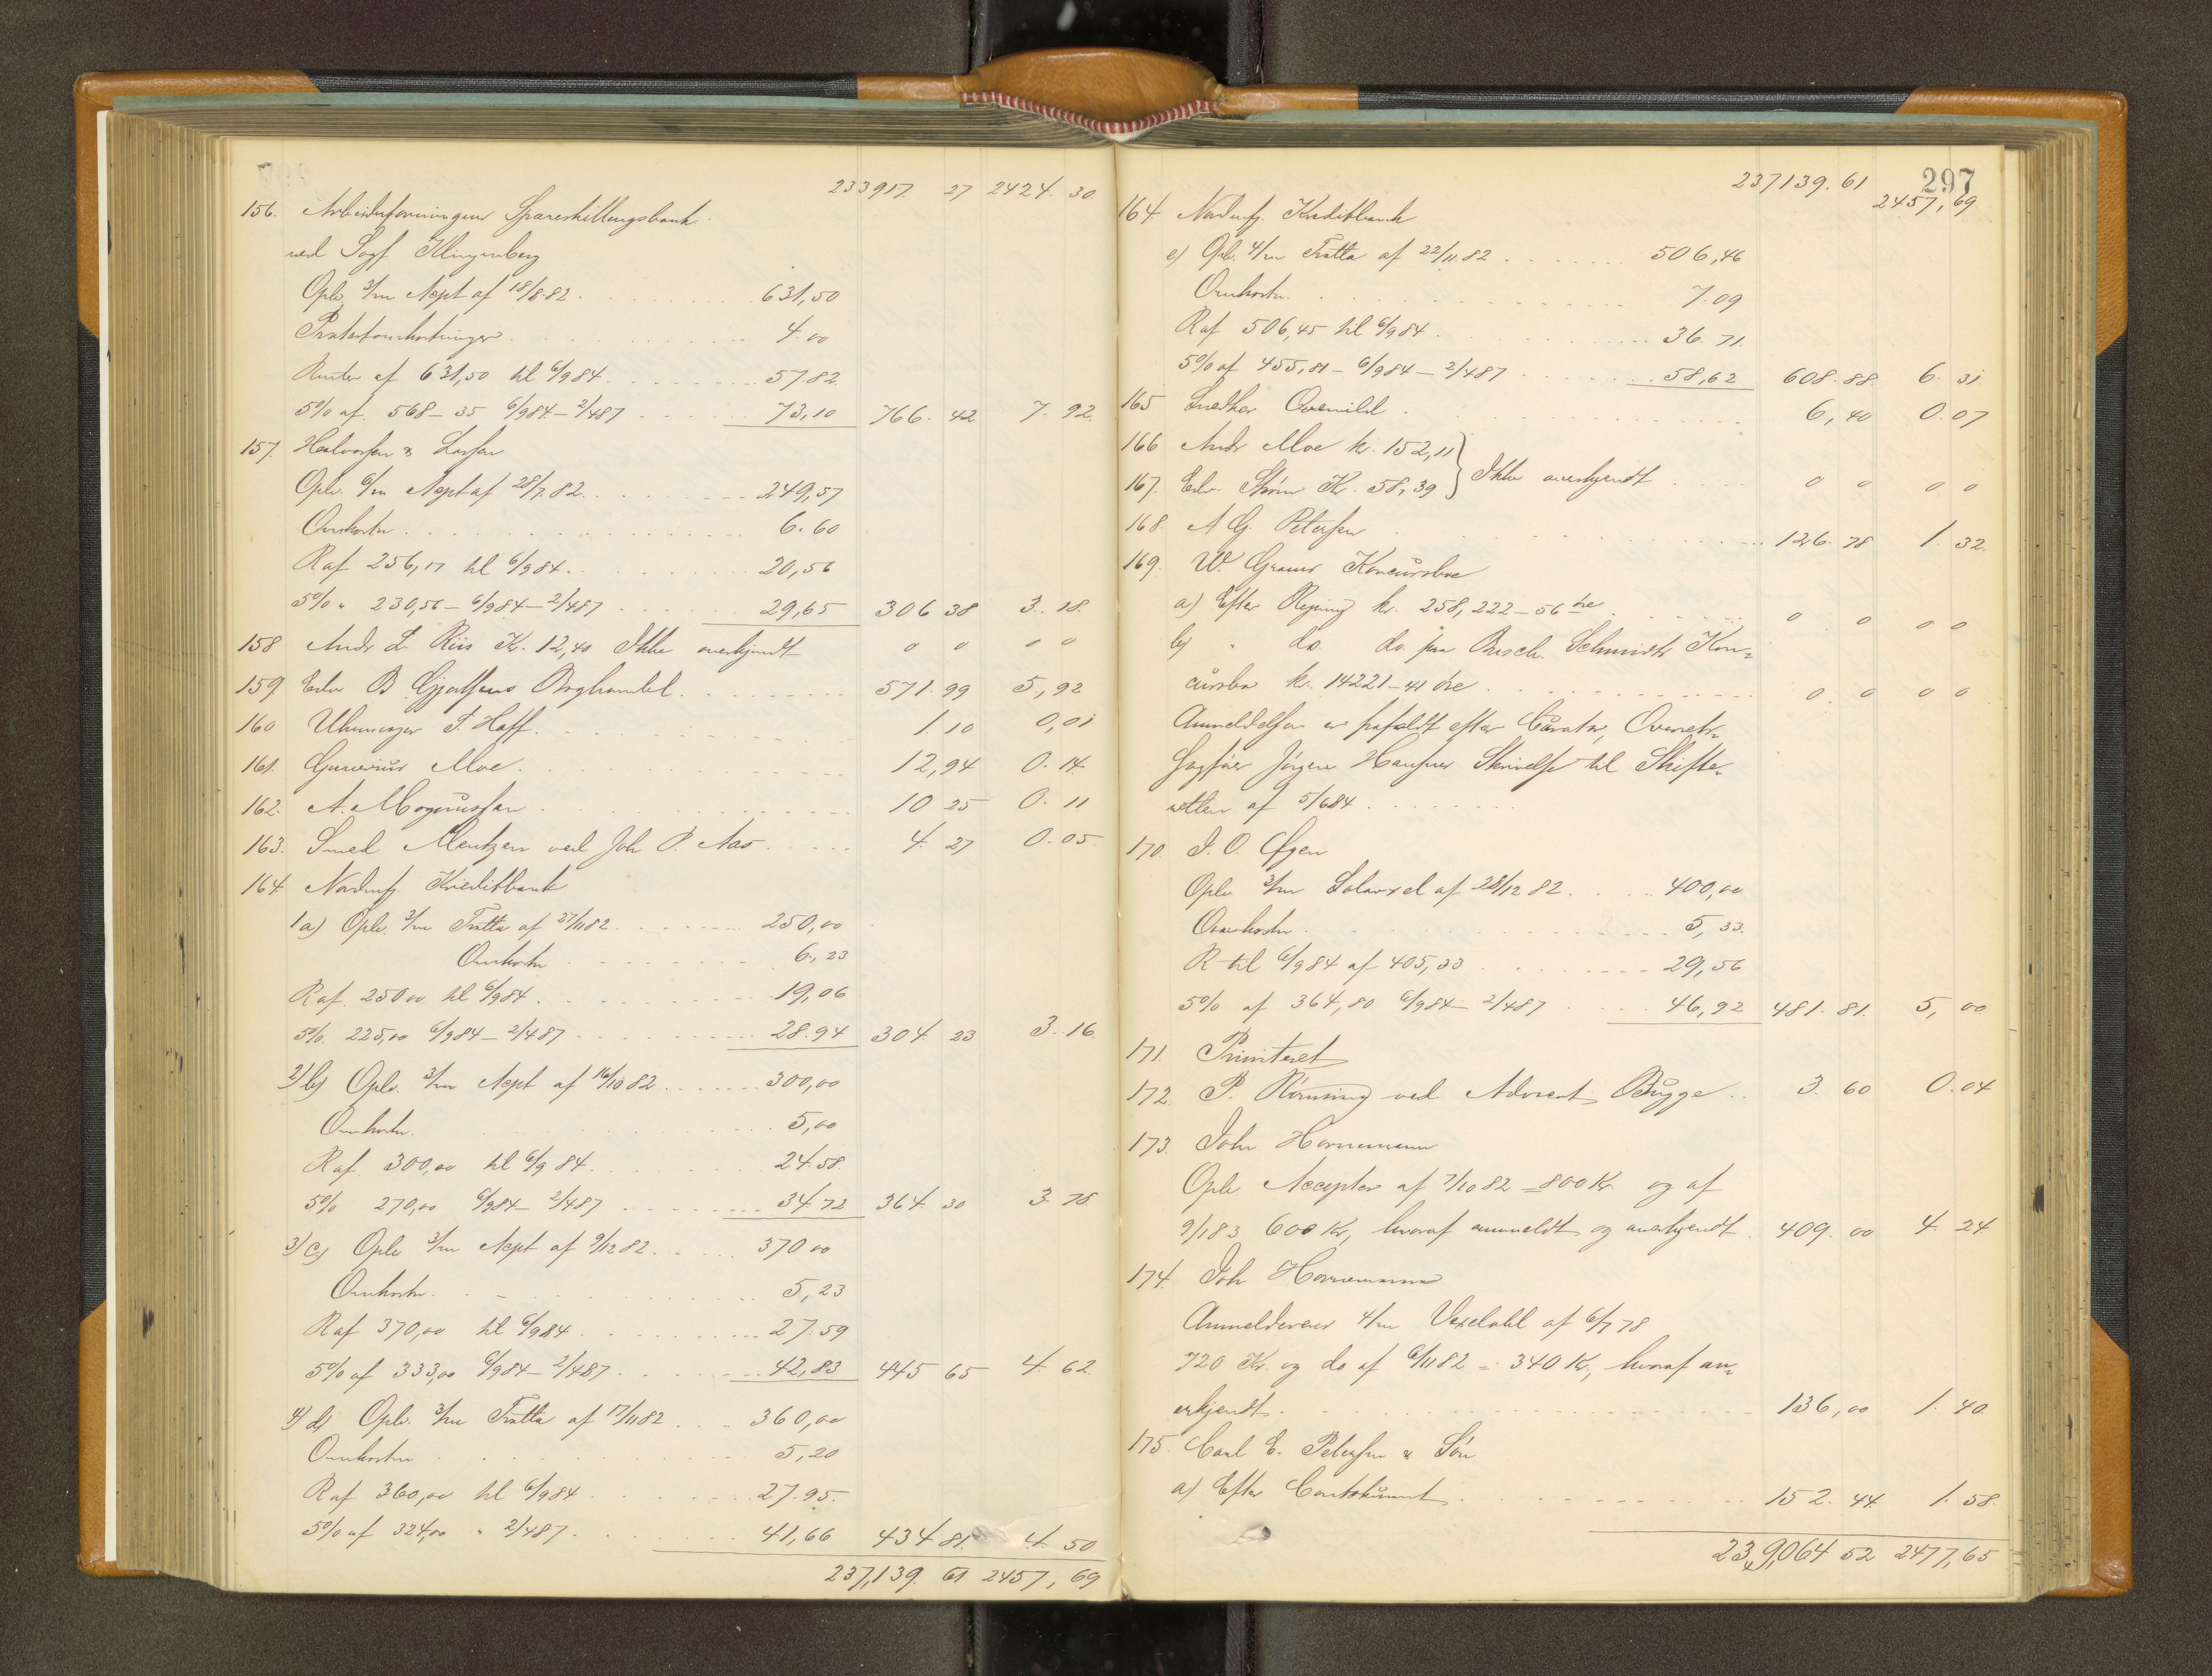 233917. 27 2424. 30.
156. Arbeiderforeningens Spareskillingsbank
ved Sagf Klingenberg
Oplv. 3/m Acpt af 18/8 82 631,50
Protestomkostninger 4.00
Renter af 631,50 til 6/9 84 57.82.
5% af 568-35 6/9 84 - 2/4 87 73,10 766. 42 7. 92.
157. Halvorsen & Larsen
Oplv. 6/m Acpt af 28/7. 82 249,57
Omkostn 6.60
R af 256,17 til 6/9 84 20,56
5% " 230,56 - 6/9 84 - 2/4 87 29,65 306 38 3. 18.
158 Andr L. Riis Kr. 12,40 Ikke anerkjendt 0 0 0 0
159 Edv B Gjertsens Boghandel 571. 99 5,92
160 Uhrmager T. Hoff. 1. 10 0,01
161. Gunerius Moe 12,94 0. 14.
162. A. Magnussen 10 25 0. 11
163. Smed Mentzen ved Joh P. Aas 4. 27 0. 05.
164. Nordenfj. Kreditbank
1 a) Oplv. 3/m Tratta af 27/11 82 250,00
Omkostn 6,23
R af. 250 00 til 6/9 84 19,06
5% 225,00 6/9 84 - 2/4 87 28.94 304. 23 3. 16.
2) b) Oplv. 3/m Acpt af 16/10 82 300,00
Omkostn. 5,00
R af. 300,00 til 6/9 84 24.58.
5% 270,00 6/9 84 - 2/4 87 34.72 364. 30 3. 78.
3) c) Oplv 3/m Acpt af 9/12 82 370 00
Omkostn. 5,23
R af 370,00 til 6/9 84 27.59
5% af 333,00 6/9 84 - 2/4 87 42,83 445 65 4. 62.
4) d) Oplv. 3/m Tratta af 17/11 82 360,00
Omkostn 5,20
R af 360,00 til 6/9 84 27.95.
5% af 324,00 " 2/4 87 41,66 434 81. 4. 50
237,139. 61 2457, 69
297
237139. 61
2457, 69
164. Nordenfj. Kreditbank
e) Oplv. 4/m Tratta af 22/11. 82 506,46
Omkostn. 7.09
R af 506,45 til 6/9 84 36. 71.
5% af 455,81 - 6/9 84 - 2/4 87 58,62 608. 88. 6. 31
165 Snedker Qvenild 6,40 0.07
166 Andr Moe kr. 152,11 } Ikke anerkjendt 0 0 0 0
167. Edv. Strøm Kr. 58,39
168. A G. Petersen 126. 78 1. 32.
169. W. Grams Koncursbo
a) Efter Regning kr. 258,222-56 øre 0 0 0 0
b) " do. do. paa Busch. Schmidts Kon-
cursbo kr. 14221-41 øre 0. 0 0 0
Anmeldelsen er frafaldt efter Curator, Overretss.
Sagfører Jörgen Hansens Skrivelse til Skifte-
retten af 5/6 84
170. J. O. Øyen
Oplv 3/m Solavexel af 28/12 82 400,00
Omkostn. 5, 33.
R til 6/9 84 af 405,33 29,56
5% af 364,80 6/9 84 - 2/4 87 46,92 481. 81. 5, 00
171. Prioriteret
172. P. Rönning ved Advocat Bugge 3. 60 0. 04
173. John Hornemann
Oplv. Accepter af 7/10 82 = 800 Kr og af
9/1 83 600 Kr, hvoraf anmeldt og anerkjendt 409. 00 4. 24.
174. Joh Hornemann
Anmelderens 4/m Vexelobl af 6/7 78
720 Kr. og do af 6/11 82 = 340 Kr, hvoraf an-
erkjendt 136,00 1. 40.
175. Carl E. Petersen & Sön
a) Efter Contokurant 152. 44. 1. 58.
239,064 52 2477,65